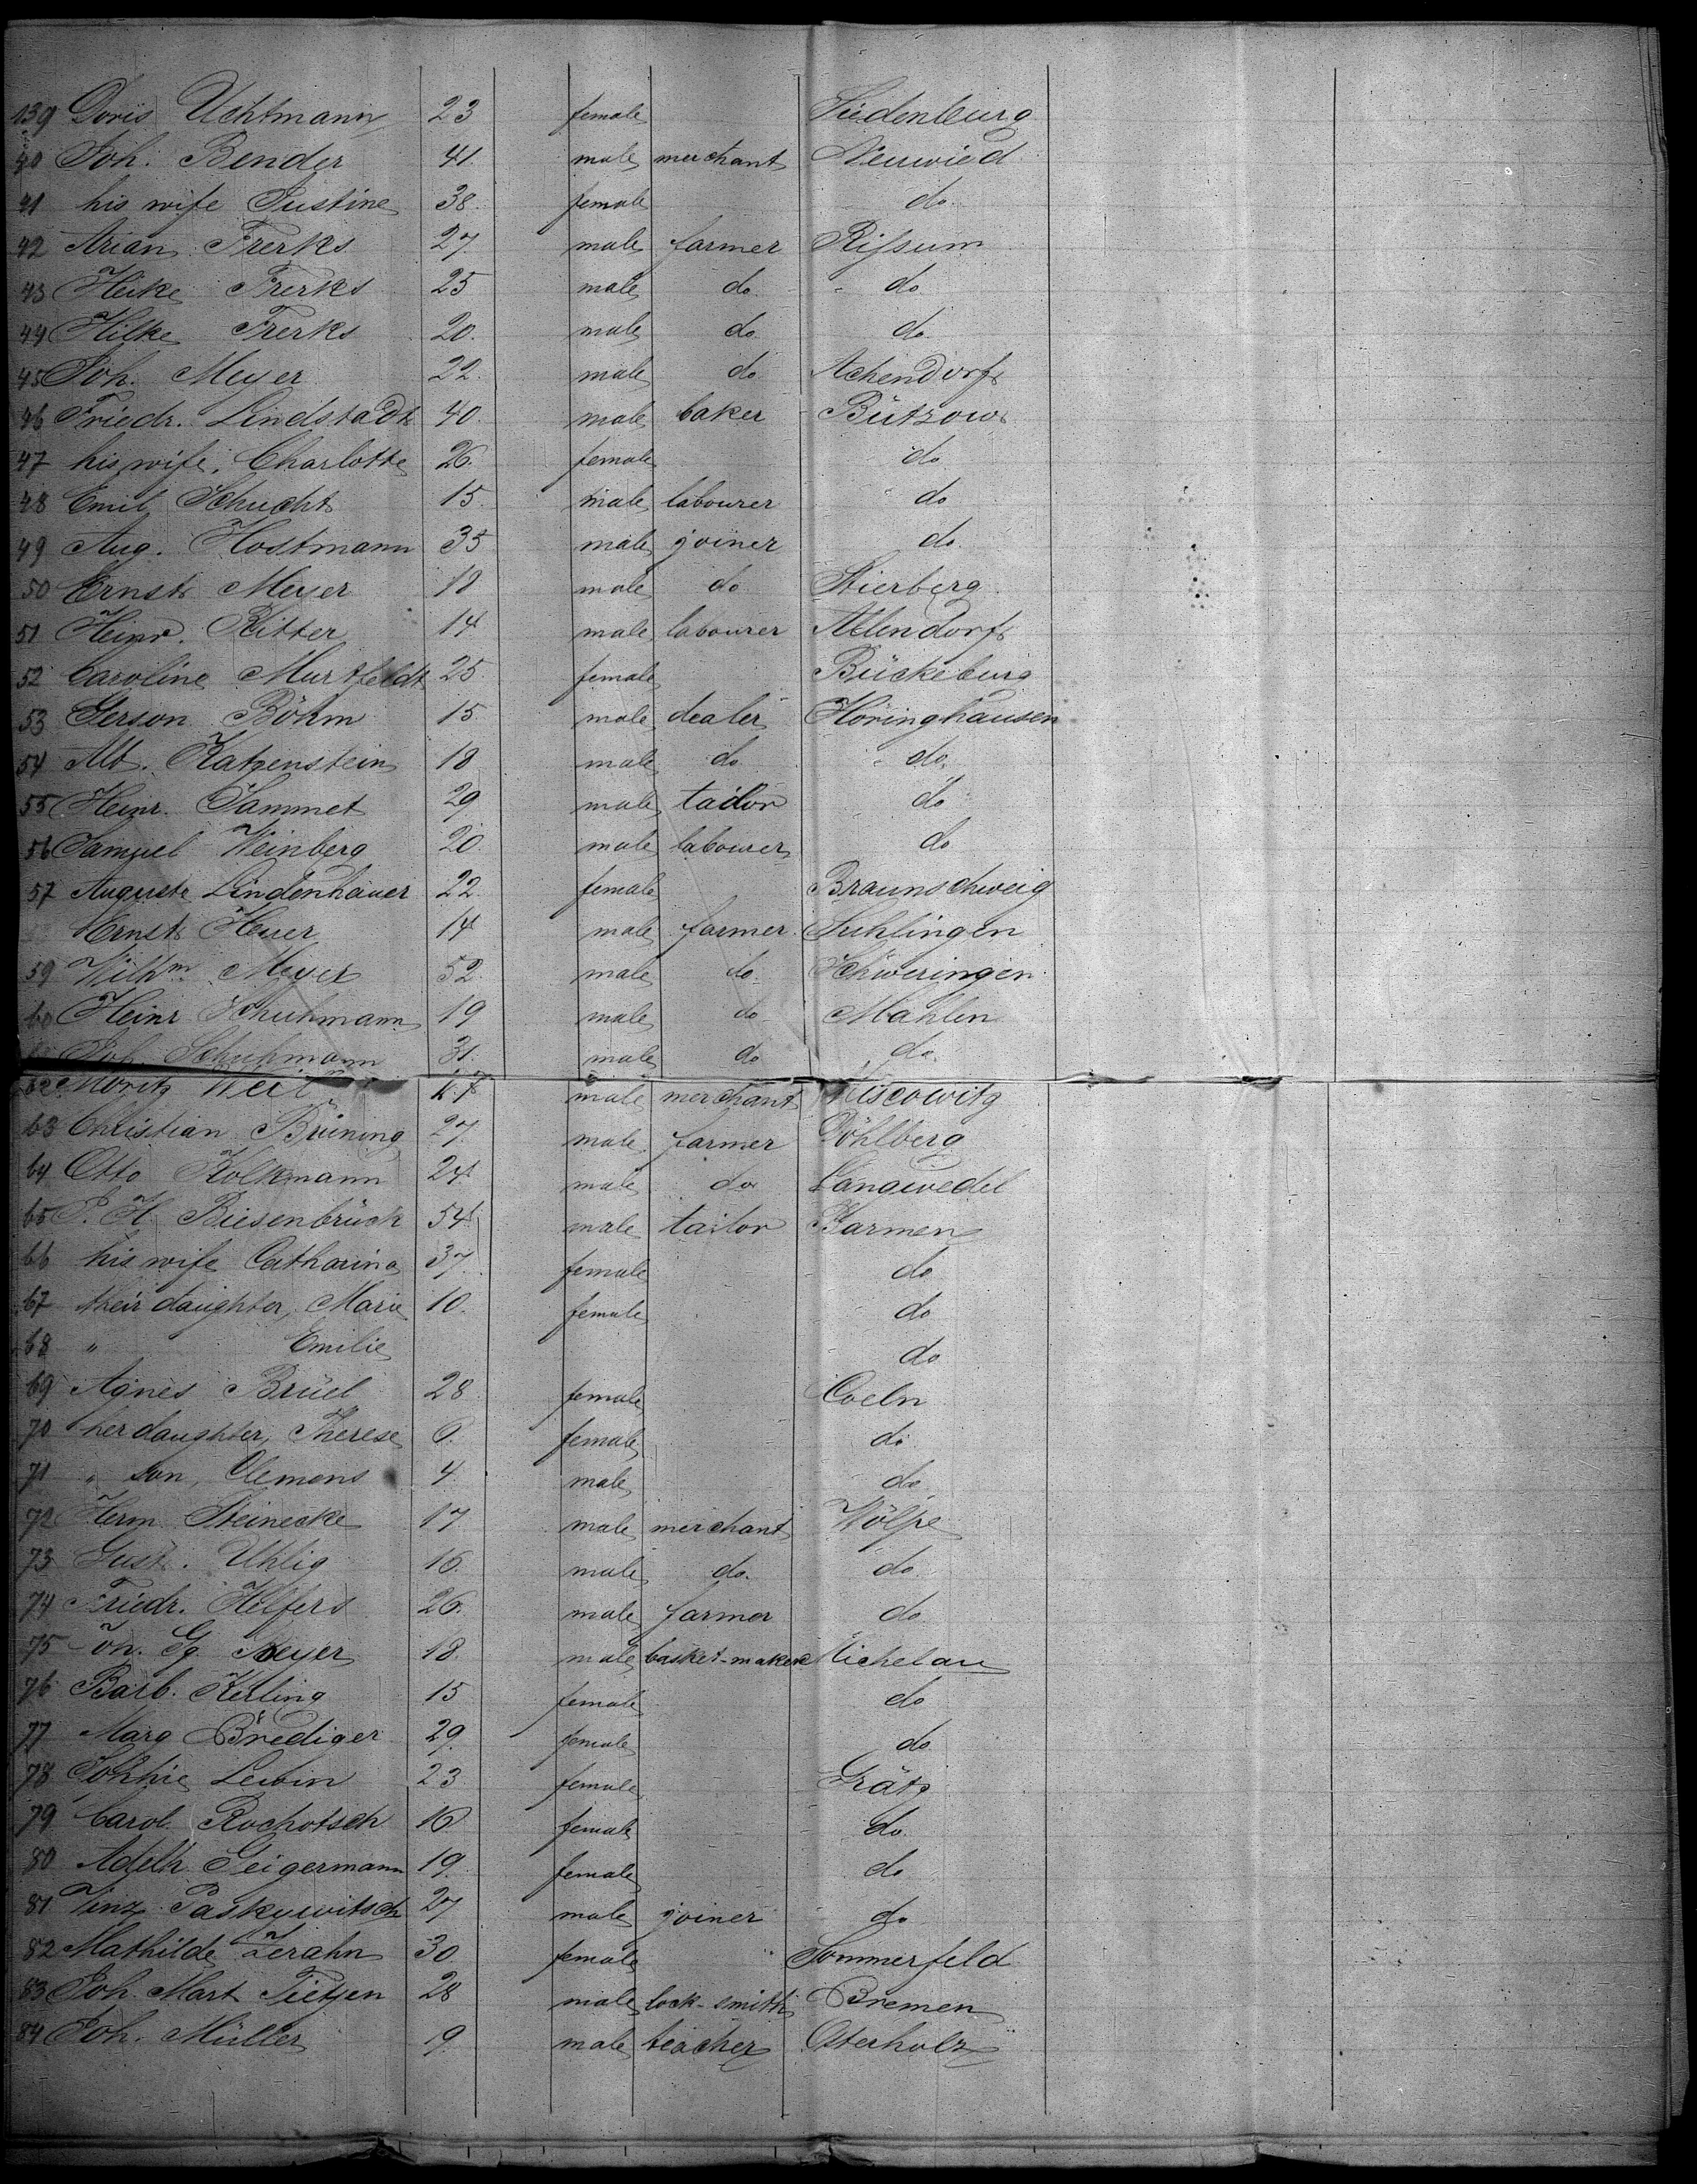 139 Doris Uchtmann 23 female Siedenburg
40 Joh. Bender 41. male merchant Neuwied
41 his wife Justine 38. female do.
42 Arian Frerks 27. male farmer Rifsum
43 Heike Frerks 25 male do. do.
44 Hilke Frerks 20. male do. do.
45 Joh. Meyer 22. male do Achendorf
46 Friedr. Lindstadt 40. male baker Bützow
47 his wife, Charlotte 26. female do.
48 Emil Schucht 15. male labourer do
49 Aug. Hostmann 35 male joiner do.
50 Ernst Meyer 18 male do Stierberg
51 Heinr. Ritter 14 male labourer Allendorf
52 Caroline Murtfeldt 25 female Bückeburg
53 Gerson Böhm 15. male dealer Höringhausen
54 Alb. Katzenstein 18 male do. do.
55 Heinr. Sammet 29 male tailor do
56 Samuel Weinberg 20. male labourer do
57 Auguste Lindenhauer 22. female Braunschweig
Ernst Heuer 14 male farmer. Suhlingen
59 Wilhm Meyer 52. male do. Schweringen
60 Heinr Schuhmann 19 male do Mahlen
Joh. Schuhmann 31. male do do.
62 Moritz Weil male merchant
63 Christian Brüning 27. male farmer Döhlberg
64 Otto Kolkmann 24 male do Langwedel
65 P. H. Biesenbrück 54 male tailor Barmen
66 his wife Catharina 37. female do
67 their daughter, Marie 10. female do
68 " Emilie do
69 Agnes Brüel 28 female Coeln
70 her daughter, Therese 6. female do.
71 " son, Clemens 4. male do.
72 Herm. Steinecke 17 male merchant Wölpe
73 Gust. Uhlig 16. male do. do.
74 Friedr. Helfers 26. male farmer do.
75 Joh. Gg. Meyer 18. male basket-maker Michelau
76 Barb. Kerling 15 female do
77 Marg Brediger 29. female do.
78 Sophie Lewin 23 female Grätz
79 Carol. Rochotsch 16 female do.
80 Adelh. Geigermann 19. female do
81 Vinz. Paskywitsch 27 male joiner do
82 Mathilde Zerahn 30 female Sommerfeld
83 Joh. Mart Tietjen 28 male lock-smith Bremen
84 Joh. Müller 19 male teacher Osterholz